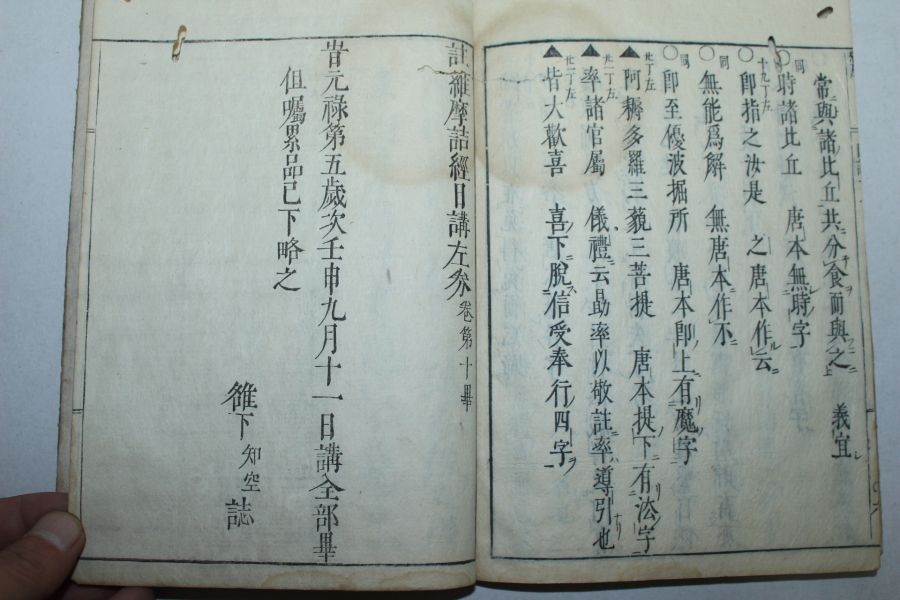 常與諸比丘共分食而與之 義宜
同
○時諸比丘 唐本無時字
十九丁左
○即指之汝是 之唐本作云
同
○無能爲解 無唐本作不
同
○即至優波掘所 唐本即上有魔字
廿丁左
▲阿耨多羅三藐三菩提 唐本提下有法字
廿一丁左
▲率諸官屬 儀禮云勛率以敬註率導引也
廿二丁左
▲皆大歡喜 喜下脫信受奉行四字
註維摩詰經日講左券 卷第十畢
昔元祿第五歲次壬申九月十一日講全部畢
但囑累品已下略之
雒下 知空 誌